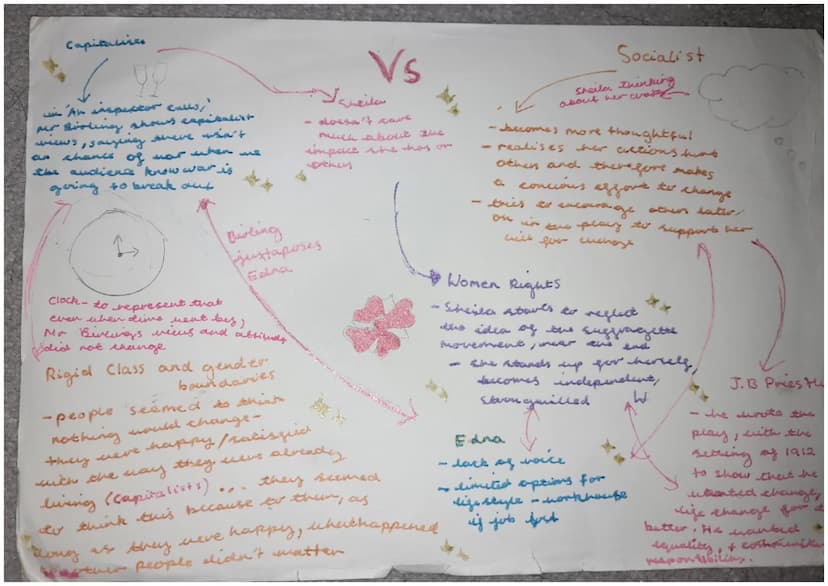 Capitalism
Vs
Socialist
in 'An inspector calls,'
Mr Birling shows capitalist
views, saying there isn't
a chance of war when we
the audience know war is
going to break out
Sheila
- doesn't care
much about the
impact she has on
others
Sheila thinking
about her
- becomes more thoughtful
- realises her actions hurt
others and therefore makes
a concious effort to change
- tries to encourage others later
on in the play to support her
for change
Birling
juxtaposes
Edna
Clock - to represent that
even when time went by,
Mr Birling's views and attitude
did not change
Women Rights
- Sheila starts to reflect
the idea of the suffragette
movement, near the end
- she stands up for herself,
becomes independent,
Rigid Class and gender
boundaries
- people seemed to think
nothing would change -
they were happy/satisfied
with the way they were already
living (capitalists) ... they seemed
to think this because to them, as
long as they were happy, what happened
to other people didn't matter
Edna
- lack of voice
- limited options for
lifestyle - workhouse
if job lost
J.B Priestle
- he wrote the
play, with the
setting of 1912
to show that he
wanted change,
life change for t
better. He wanted
equality, +
responsibility.